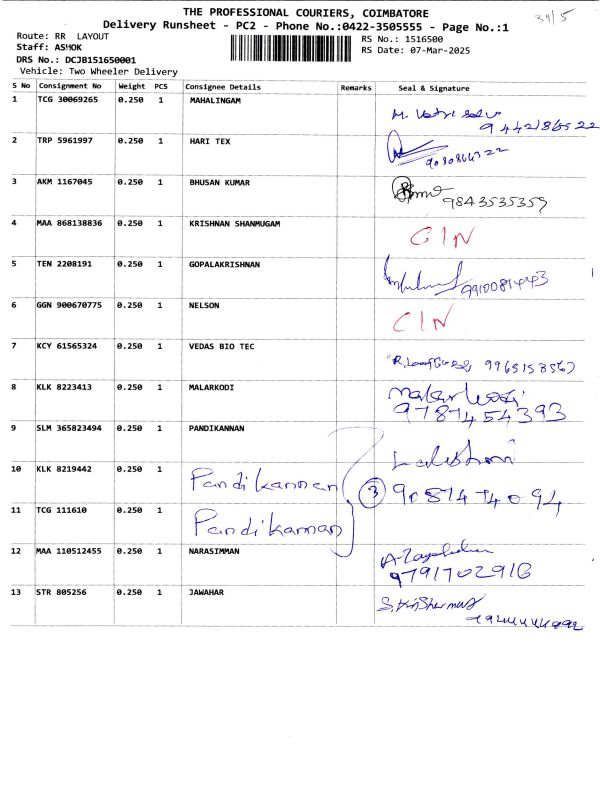 THE PROFESSIONAL COURIERS, COIMBATORE
Delivery Runsheet - PC2 - Phone No.:0422-3505555 - Page No.:1
Route: RR LAYOUT
RS No.: 1516500
Staff: ASHOK
RS Date: 07-Mar-2025
DRS No.: DCJB151650001
Vehicle: Two Wheeler Delivery
S No Consignment No Weight PCS Consignee Details Remarks Seal & Signature
1 TCG 30069265 0.250 1 MAHALINGAM
2 TRP 5961997 0.250 1 HARI TEX
3 AKM 1167045 0.250 1 BHUSAN KUMAR 9843535359
4 MAA 868138836 0.250 1 KRISHNAN SHANMUGAM CIN
5 TEN 2208191 0.250 1 GOPALAKRISHNAN
6 GGN 900670775 0.250 1 NELSON CIN
7 KCY 61565324 0.250 1 VEDAS BIO TEC
8 KLK 8223413 0.250 1 MALARKODI
9787454393
9 SLM 365823494 0.250 1 PANDIKANNAN
10 KLK 8219442 0.250 1 Pandikannan 3 9087474094
11 TCG 111610 0.250 1 Pandikannan
12 MAA 110512455 0.250 1 NARASIMMAN
9791702916
13 STR 805256 0.250 1 JAWAHAR